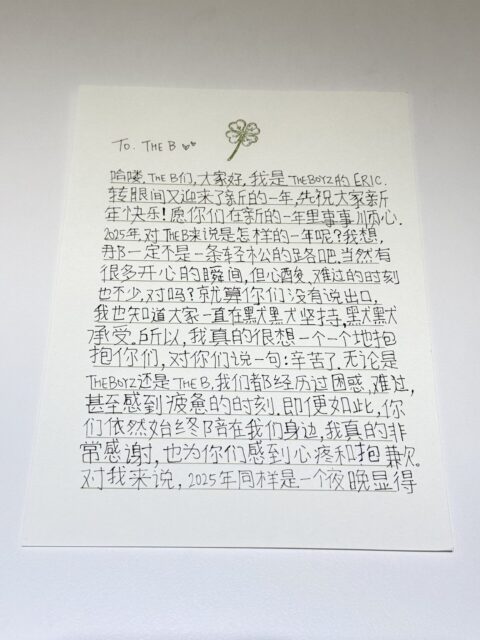 To. THE B ♡♡
哈喽, THE B们, 大家好, 我是 THEBOYZ的 ERIC.
转眼间又迎来了新的一年, 先祝大家新
年快乐! 愿你们在新的一年里事事顺心.
2025年, 对THE B来说是怎样的一年呢? 我想,
那一定不是一条轻松的路吧. 当然有
很多开心的瞬间, 但心酸、难过的时刻
也不少, 对吗? 就算你们没有说出口,
我也知道大家一直在默默坚持, 默默
承受. 所以, 我真的很想一个一个地抱
抱你们, 对你们说一句: 辛苦了. 无论是
THEBOYZ还是THE B, 我们都经历过困惑、难过,
甚至感到疲惫的时刻. 即便如此, 你
们依然始终陪在我们身边, 我真的非
常感谢, 也为你们感到心疼和抱歉.
对我来说, 2025年同样是一个夜晚显得